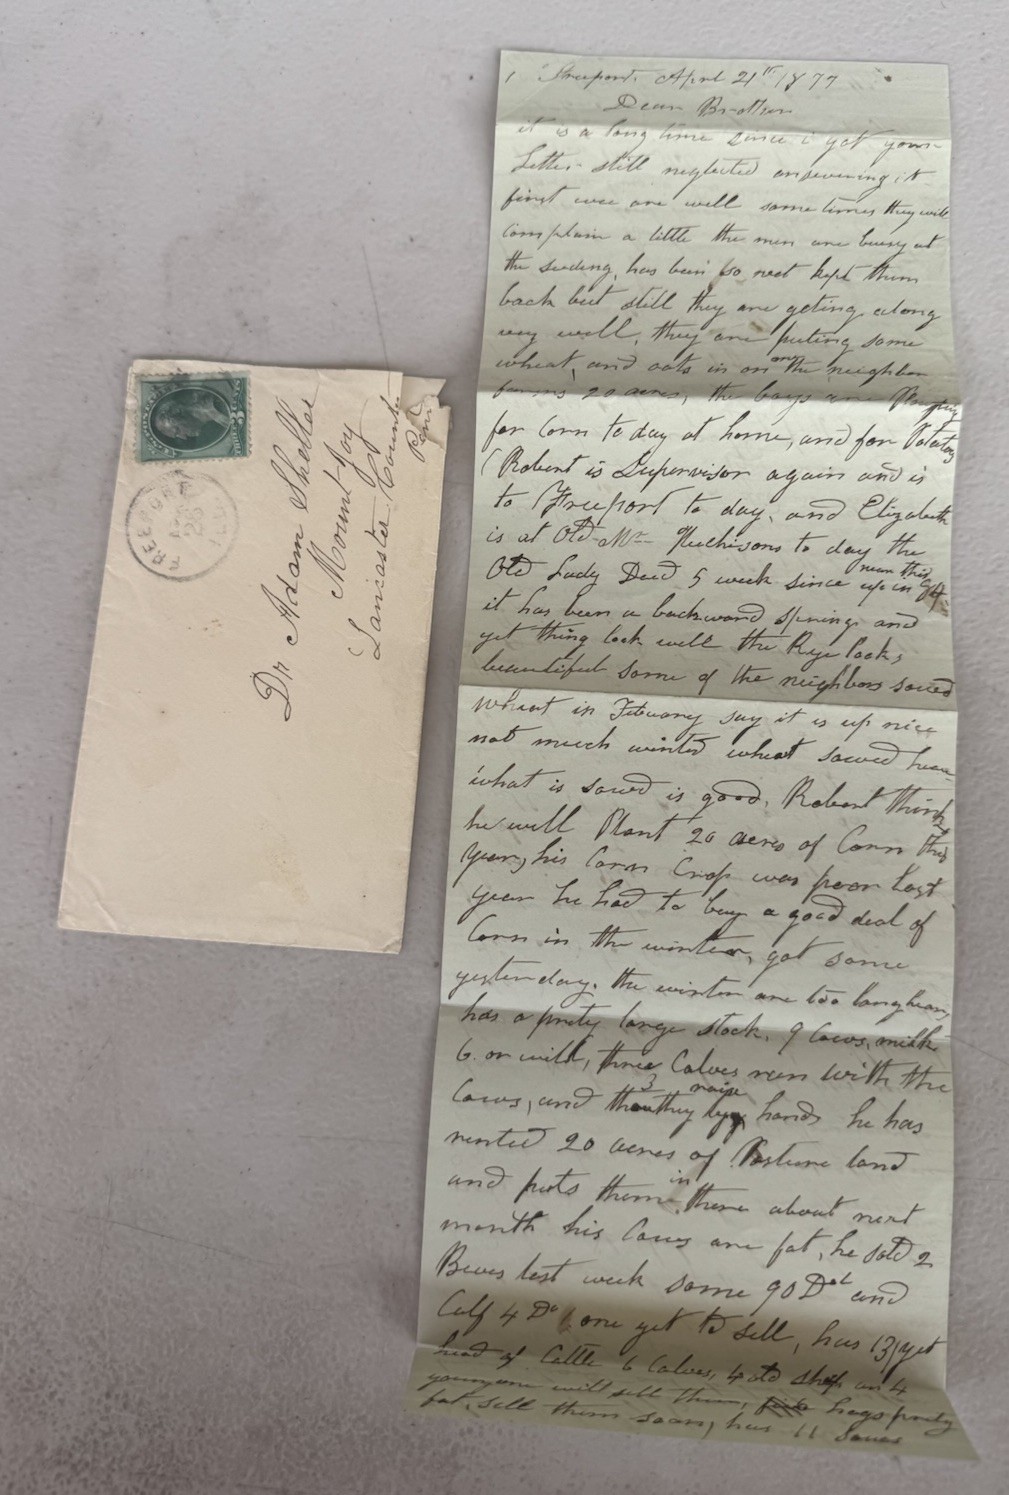 Dr Adam Sheller
Mount Joy
Lancaster County
Penn
FREEPORT
1 Freeport April 21th 1877
Dear Brother
it is a long time since i got your
Letter still neglected answering it
first wee are well some times they will
complain a little the men are buisy at
the seeding, has been so wet kept them
back but still they are geting along
very well, they are puting some
wheat, and oats in on the neighbor
farms 20 acres, the boys are
for Corn to day at home, and for Potatoes
Robert is Supervisor again and is
to Freeport to day, and Elizabeth
is at Old Mr Huchisons to day the
Old Lady Died 5 week since up in
near this
it has been a backward spring and
yet thing look well the Rye looks
beautiful some of the neighbors sowed
Wheat in Febuary say it is up nice
not much winter wheat sowed hear
what is sowed is good. Robert think
he will Plant 20 acres of Corn this
year, his Corn Crop was poor last
year he had to buy a good deal of
Corn in the winter, got some
yesterday. the winter are too long hear,
has a prity large stock. 9 Cows, milk
6 or will, three Calves run with the
Cows, and 3 they raise by hand he has
rented 20 acres of Pasture land
and puts them in there about next
month his Cows are fat, he sold 2
Beves last week some 90 Dol and
Calf 4 Do one yet to sell, has 13 yet
head of Cattle 6 Calves, 4 old sheep an 4
young one will sell them, hogs prity
fat, sell them soon, has 11 Sows